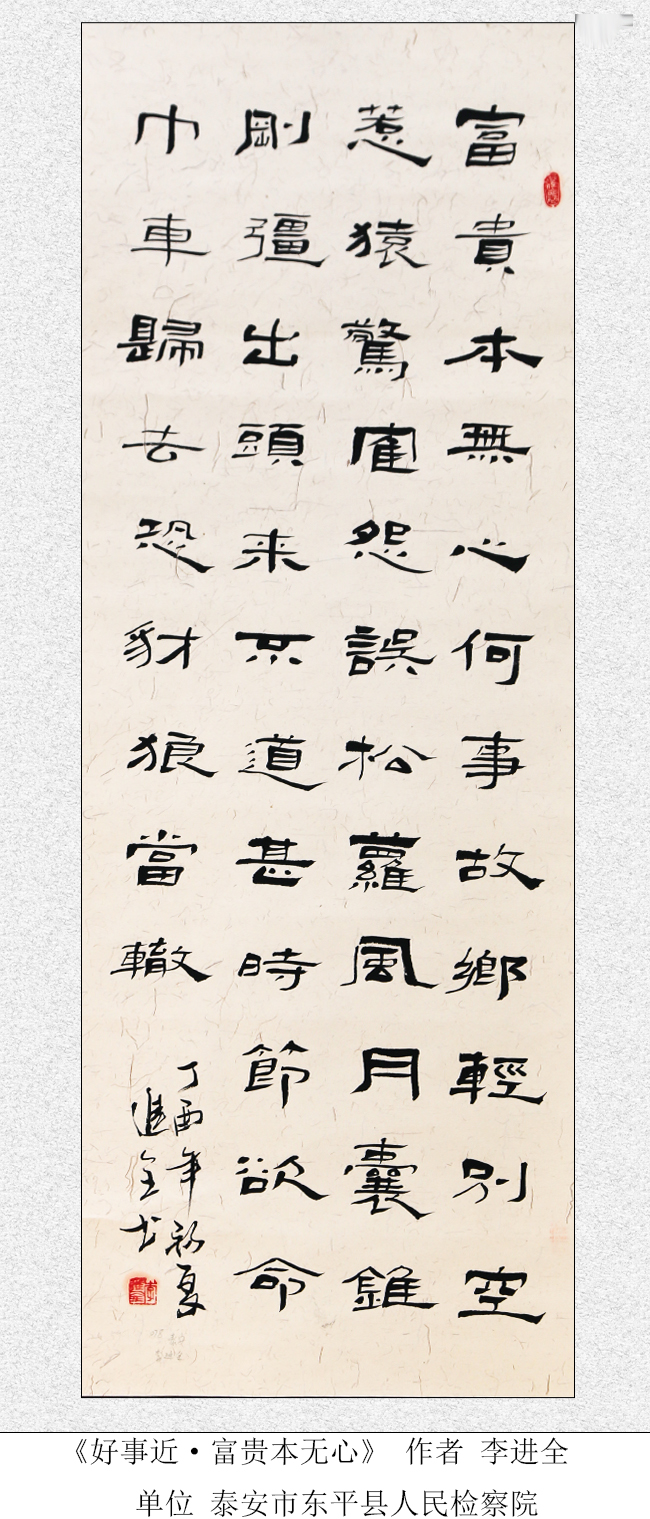 富貴本無心何事故鄉輕別空
惹猿驚隺怨誤松蘿風月囊錐
剛彊出頭来不道甚時節欲命
巾車歸去恐豺狼當轍
丁酉年初夏
進全书
《好事近·富贵本无心》 作者 李进全
单位 泰安市东平县人民检察院